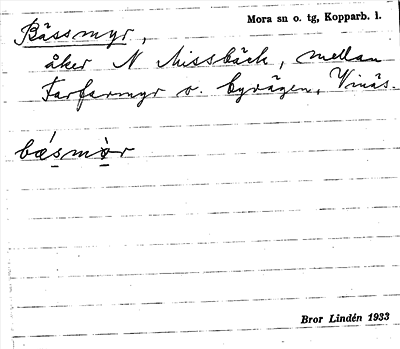 Bässmyr,
Mora sn o. tg, Kopparb. l.
åker N Missbäck, mellan
Farfarmyr o. byvägen, Vinäs.
bǽsmὸr
Bror Lindén 1933